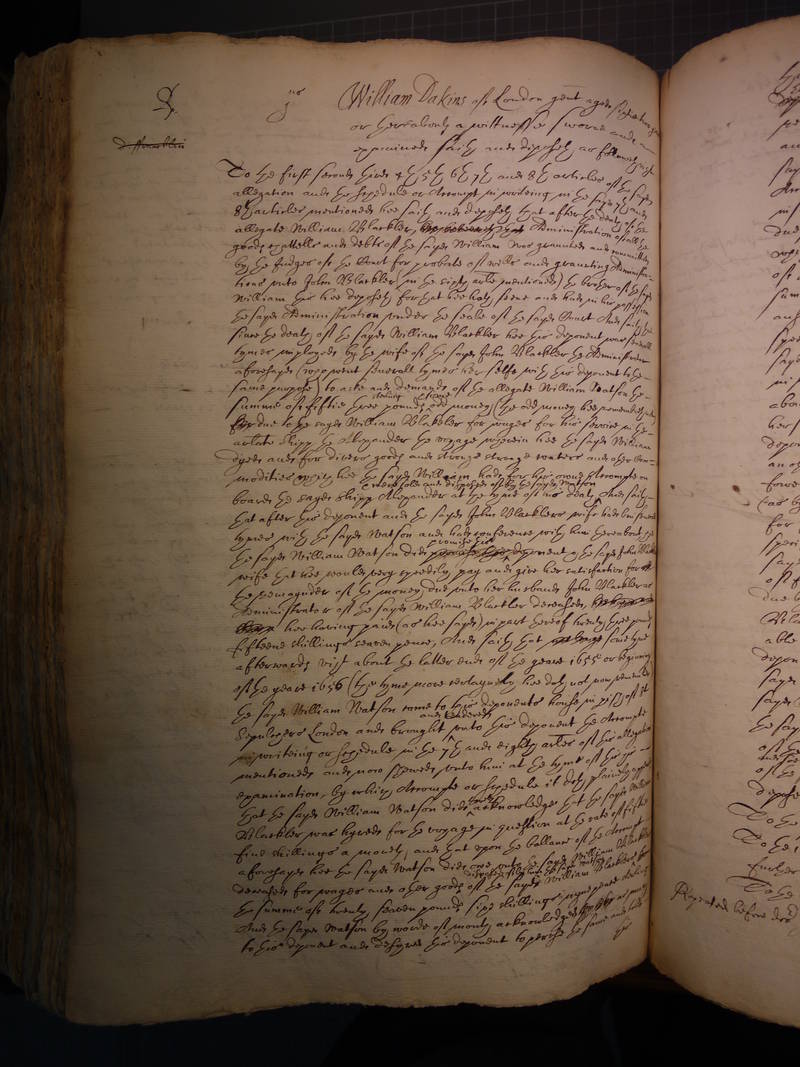 William Dakins of London gent aged
or thereabouts a wittnesse sworne and
examined saith and deposeth as followeth vizt
To the first second third 4th 5th 6th 7th and 8th articles of the sayd
allegation and the schedule or Accompt in writeing in the sayd 7th and
8th articles mentioned hee saith and deposeth that after the death of the
allegate William Blackler, Administration of all the
goods chattells and debts of the sayd William was graunted and committed
by the Judges of the Court for probate of wills and graunting Administra=
tions unto John Blackler (in the sixth article mentioned) the brother of the sayd
William this hee deposeth for that hee hath seene and had in his possession
the sayd Administration under the seale of the sayd Court And saith that
since the death of the sayd William Blackler hee this deponent was severall
tymes imployed by the wife of the sayd John Blackler the Administrator
aforesayd (whoe went severall tymes her selfe with this deponent to the
same purpose) to aske and demand of the allegate William Watson the
summe of fiftie three pounds sterling odd money (the odd money hee remembreth not)
due to the sayd William Blackler for wages for his service in the
arlate shipp the Alexander the voyage wherein hee the sayd William
dyed and for divers goods and stronge waters and other Com=
modities which hee the sayd William had for his owne Accompte on
board the sayd shipp Alexander at the tyme of his death And saith
that after this deponent and the sayd John Blacklers wife had bin severall
tymes with the sayd Watson and had conference with him thereabout
the sayd William Watson did promise this deponent and the sayd John Blacklers
wife that hee would very speedily pay and give her satisfaction for
the remaynder of the money due unto her husband John Blackler as
Administrator of the sayd William Blackler deceased,
hee having paied (as hee sayd) in part thereof twenty three pounds
fifteene shillings seaven pence, And saith that sometyme
afterwards vizt about the latter end of the yeare 1655 or beginning
of the yeare 1656 (the tyme more certaynely hee doth not nowe remember)
the sayd William Watson came to this deponents house in pish of St
Sepulchers London and brought and tendered unto this deponent the Accompte
in writeing or schedule in the 7th and eighth arles of this allegation
mentioned and now shewed unto him at the tyme of this his
examination, by which Accompte or schedule it doth plainely appeare
that the sayd William Watson did acknowledge that the sayd William
Blackler was hyred for the voyage in question at the rate of fiftie
five shillings a moneth, and that upon the ballance of the Accompt
aforesayd hee the sayd Watson did owe unto the sayd William Blackler
deceased for wages and other goods of the sayd William Blackler
the summe of twenty seaven pounds sixe shillings pence sterling
And the sayd Watson by worde of mouth acknowledged as much
to this deponent and desyred this deponent to peruse the same and
the
Repeated before